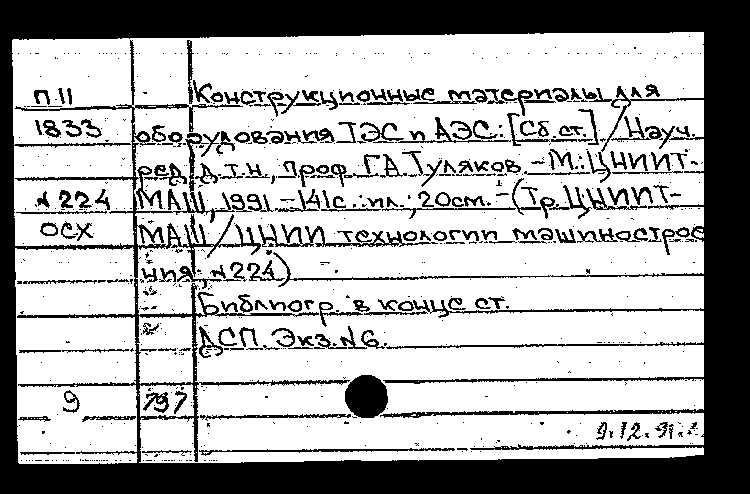 П 11 Конструкционные материалы для
1833 оборудования ТЭС и АЭС: [Сб. ст.] / Науч.
ред. д.т.н., проф. Г.А. Туляков. - М.: ЦНИИТ-
№224 МАШ, 1991. - 141с.: ил.; 20см. - (Тр. ЦНИИТ-
ОСХ МАШ / ЦНИИ технологии машинострое
ния; №224)
Библиогр. в конце ст.
ДСП. Экз. №6.
9 797
9.12.91.